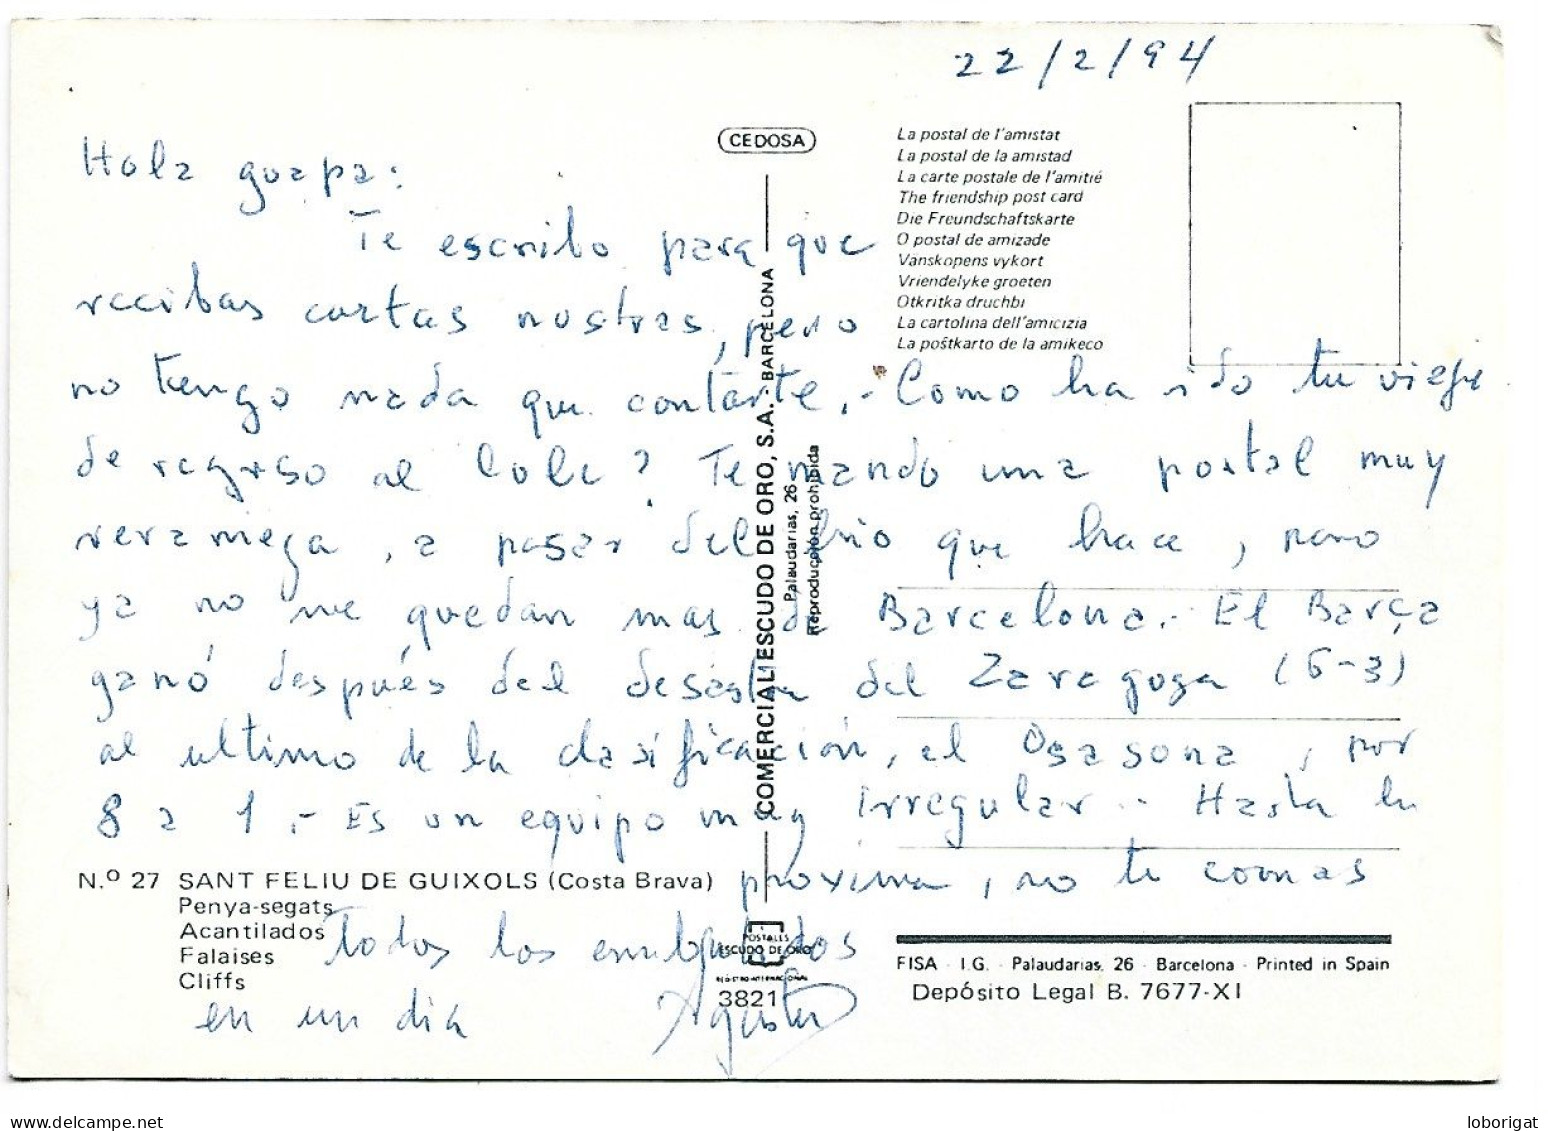 22/2/94
CEDOSA
La postal de l'amistat
La postal de la amistad
La carte postale de l'amitié
The friendship post card
Die Freundschaftskarte
O postal de amizade
Vänskopens vykort
Vriendelyke groeten
Otkritka druchbi
La cartolina dell'amicizia
La poŝtkarto de la amikeco
Hola guapa:
Te escribo para que
recibas cartas nostras, pero
no tengo nada que contarte.- Como ha ido tu viaje
de regreso al Cole? Te mando una postal muy
veraniega, a pesar del frio que hace, pero
ya no me quedan mas de Barcelona.- El Barça
ganó después del desastre del Zaragoza (6-3)
al ultimo de la clasificación, el Osasona, por
8 a 1.- Es un equipo muy irregular.- Hasta la
proxima, no te comas
todos los embutidos
en un dia
Agustin
COMERCIAL ESCUDO DE ORO, S.A. BARCELONA
Palaudarias, 26
Reproducción prohibida
N.º 27 SANT FELIU DE GUIXOLS (Costa Brava)
Penya-segats
Acantilados
Falaises
Cliffs
POSTALES
ESCUDO DE ORO
REGISTRO INTERNACIONAL
3821
FISA - I.G. - Palaudarias, 26 - Barcelona - Printed in Spain
Depósito Legal B. 7677-XI
delcampe.net
loborigat